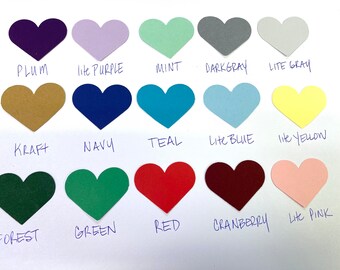 PLUM lite PURPLE MINT DARKGRAY LITE GRAY
KRAFT NAVY TEAL Lite BLUE lite YELLOW
FOREST GREEN RED CRANBERRY Lite PINK